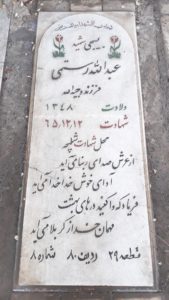 بسیجی شهید
عبدالله رستمی
فرزند وجیه الله
ولادت ۱۳۴۸
شهادت ۶۵،۱۲،۱۲
محل شهادت شلمچه
از عرش صدای ربنا می آید
آوای خوش خدا خدا می آید
فریاد که وا کنید درهای بهشت
مهمان خدا ز کربلا می آید
قطعه ۲۹ ردیف ۸۰ شماره ۸